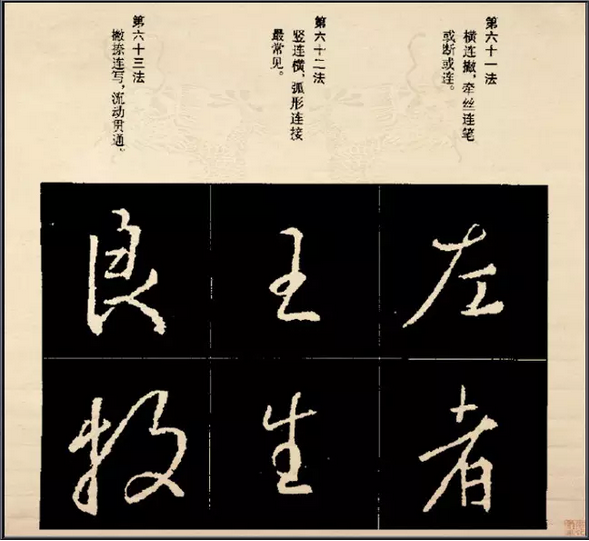 第六十一法
横连撇,牵丝连笔
或断或连。
第六十二法
竖连横、弧形连接
最常见。
第六十三法
撇捺连写,流动贯通。
左
者
王
生
良
牧